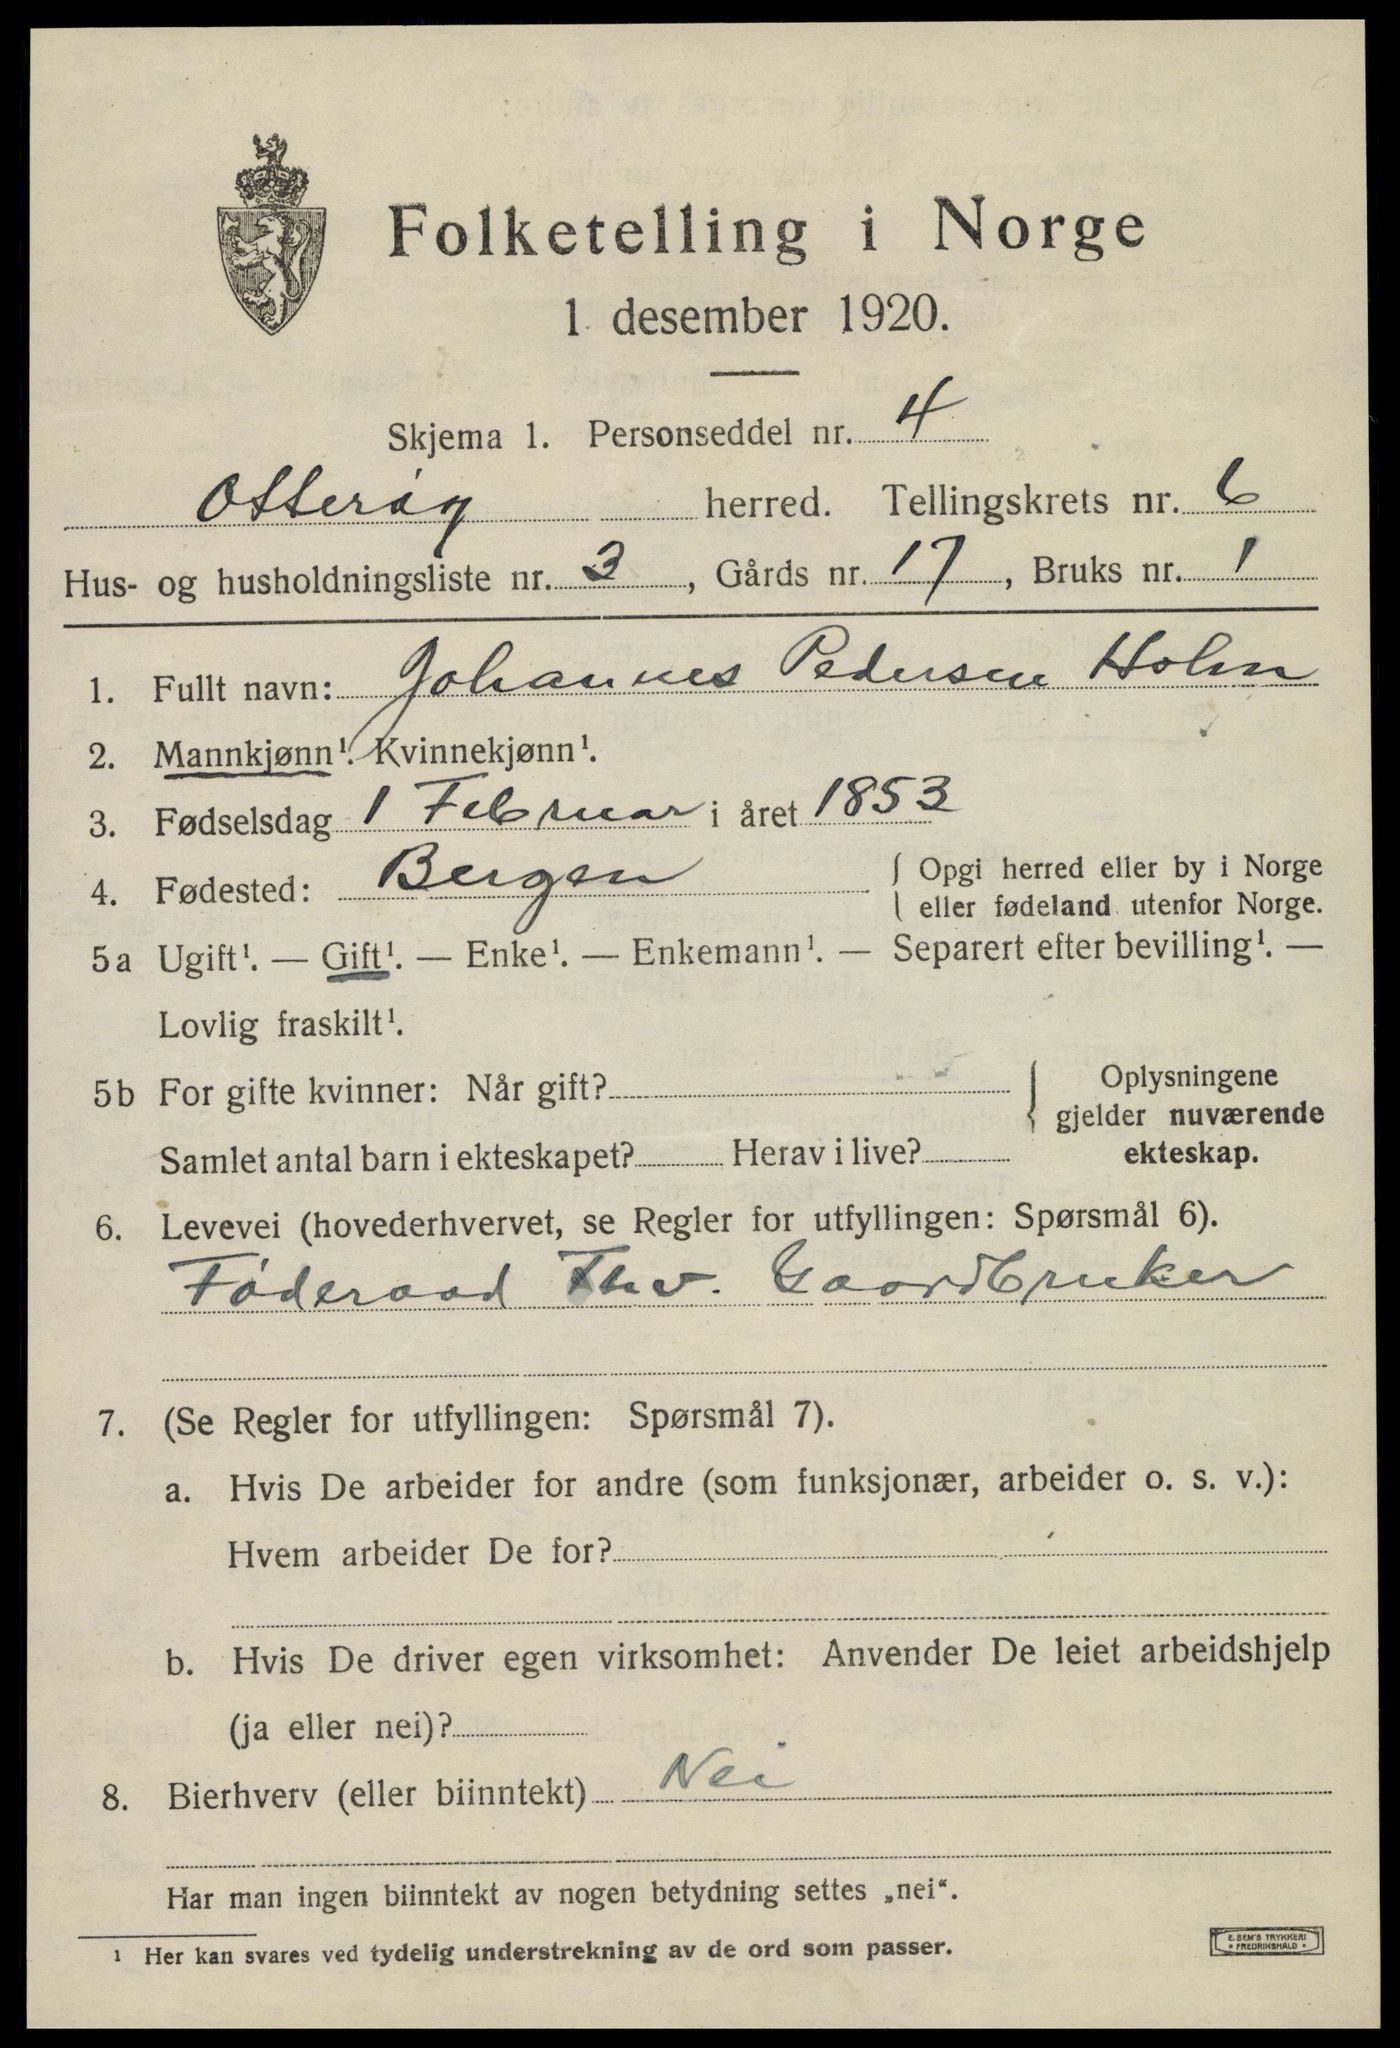 Folketelling i Norge
1 desember 1920.
Skjema 1. Personseddel nr. 4
Otterøy herred. Tellingskrets nr. 6
Hus- og husholdningsliste nr. 3, Gårds nr. 17, Bruks nr. 1
1. Fullt navn: Johannes Pedersen Holm
2. Mannkjønn¹. Kvinnekjønn¹.
3. Fødselsdag 1 Februar i året 1853
4. Fødested: Bergen { Opgi herred eller by i Norge
eller fødeland utenfor Norge.
5a Ugift¹. — Gift¹. — Enke¹. — Enkemann¹. — Separert efter bevilling¹. —
Lovlig fraskilt¹.
5b For gifte kvinner: Når gift? { Oplysningene
gjelder nuværende
Samlet antal barn i ekteskapet? Herav i live? ekteskap.
6. Levevei (hovederhvervet, se Regler for utfyllingen: Spørsmål 6).
Føderaad Fhv. Gaardbruker
7. (Se Regler for utfyllingen: Spørsmål 7).
a. Hvis De arbeider for andre (som funksjonær, arbeider o. s. v.):
Hvem arbeider De for?
b. Hvis De driver egen virksomhet: Anvender De leiet arbeidshjelp
(ja eller nei)?
8. Bierhverv (eller biinntekt) Nei
Har man ingen biinntekt av nogen betydning settes „nei“.
¹ Her kan svares ved tydelig understrekning av de ord som passer.
E. SEM'S TRYKKERI
• FREDRIKSHALD •